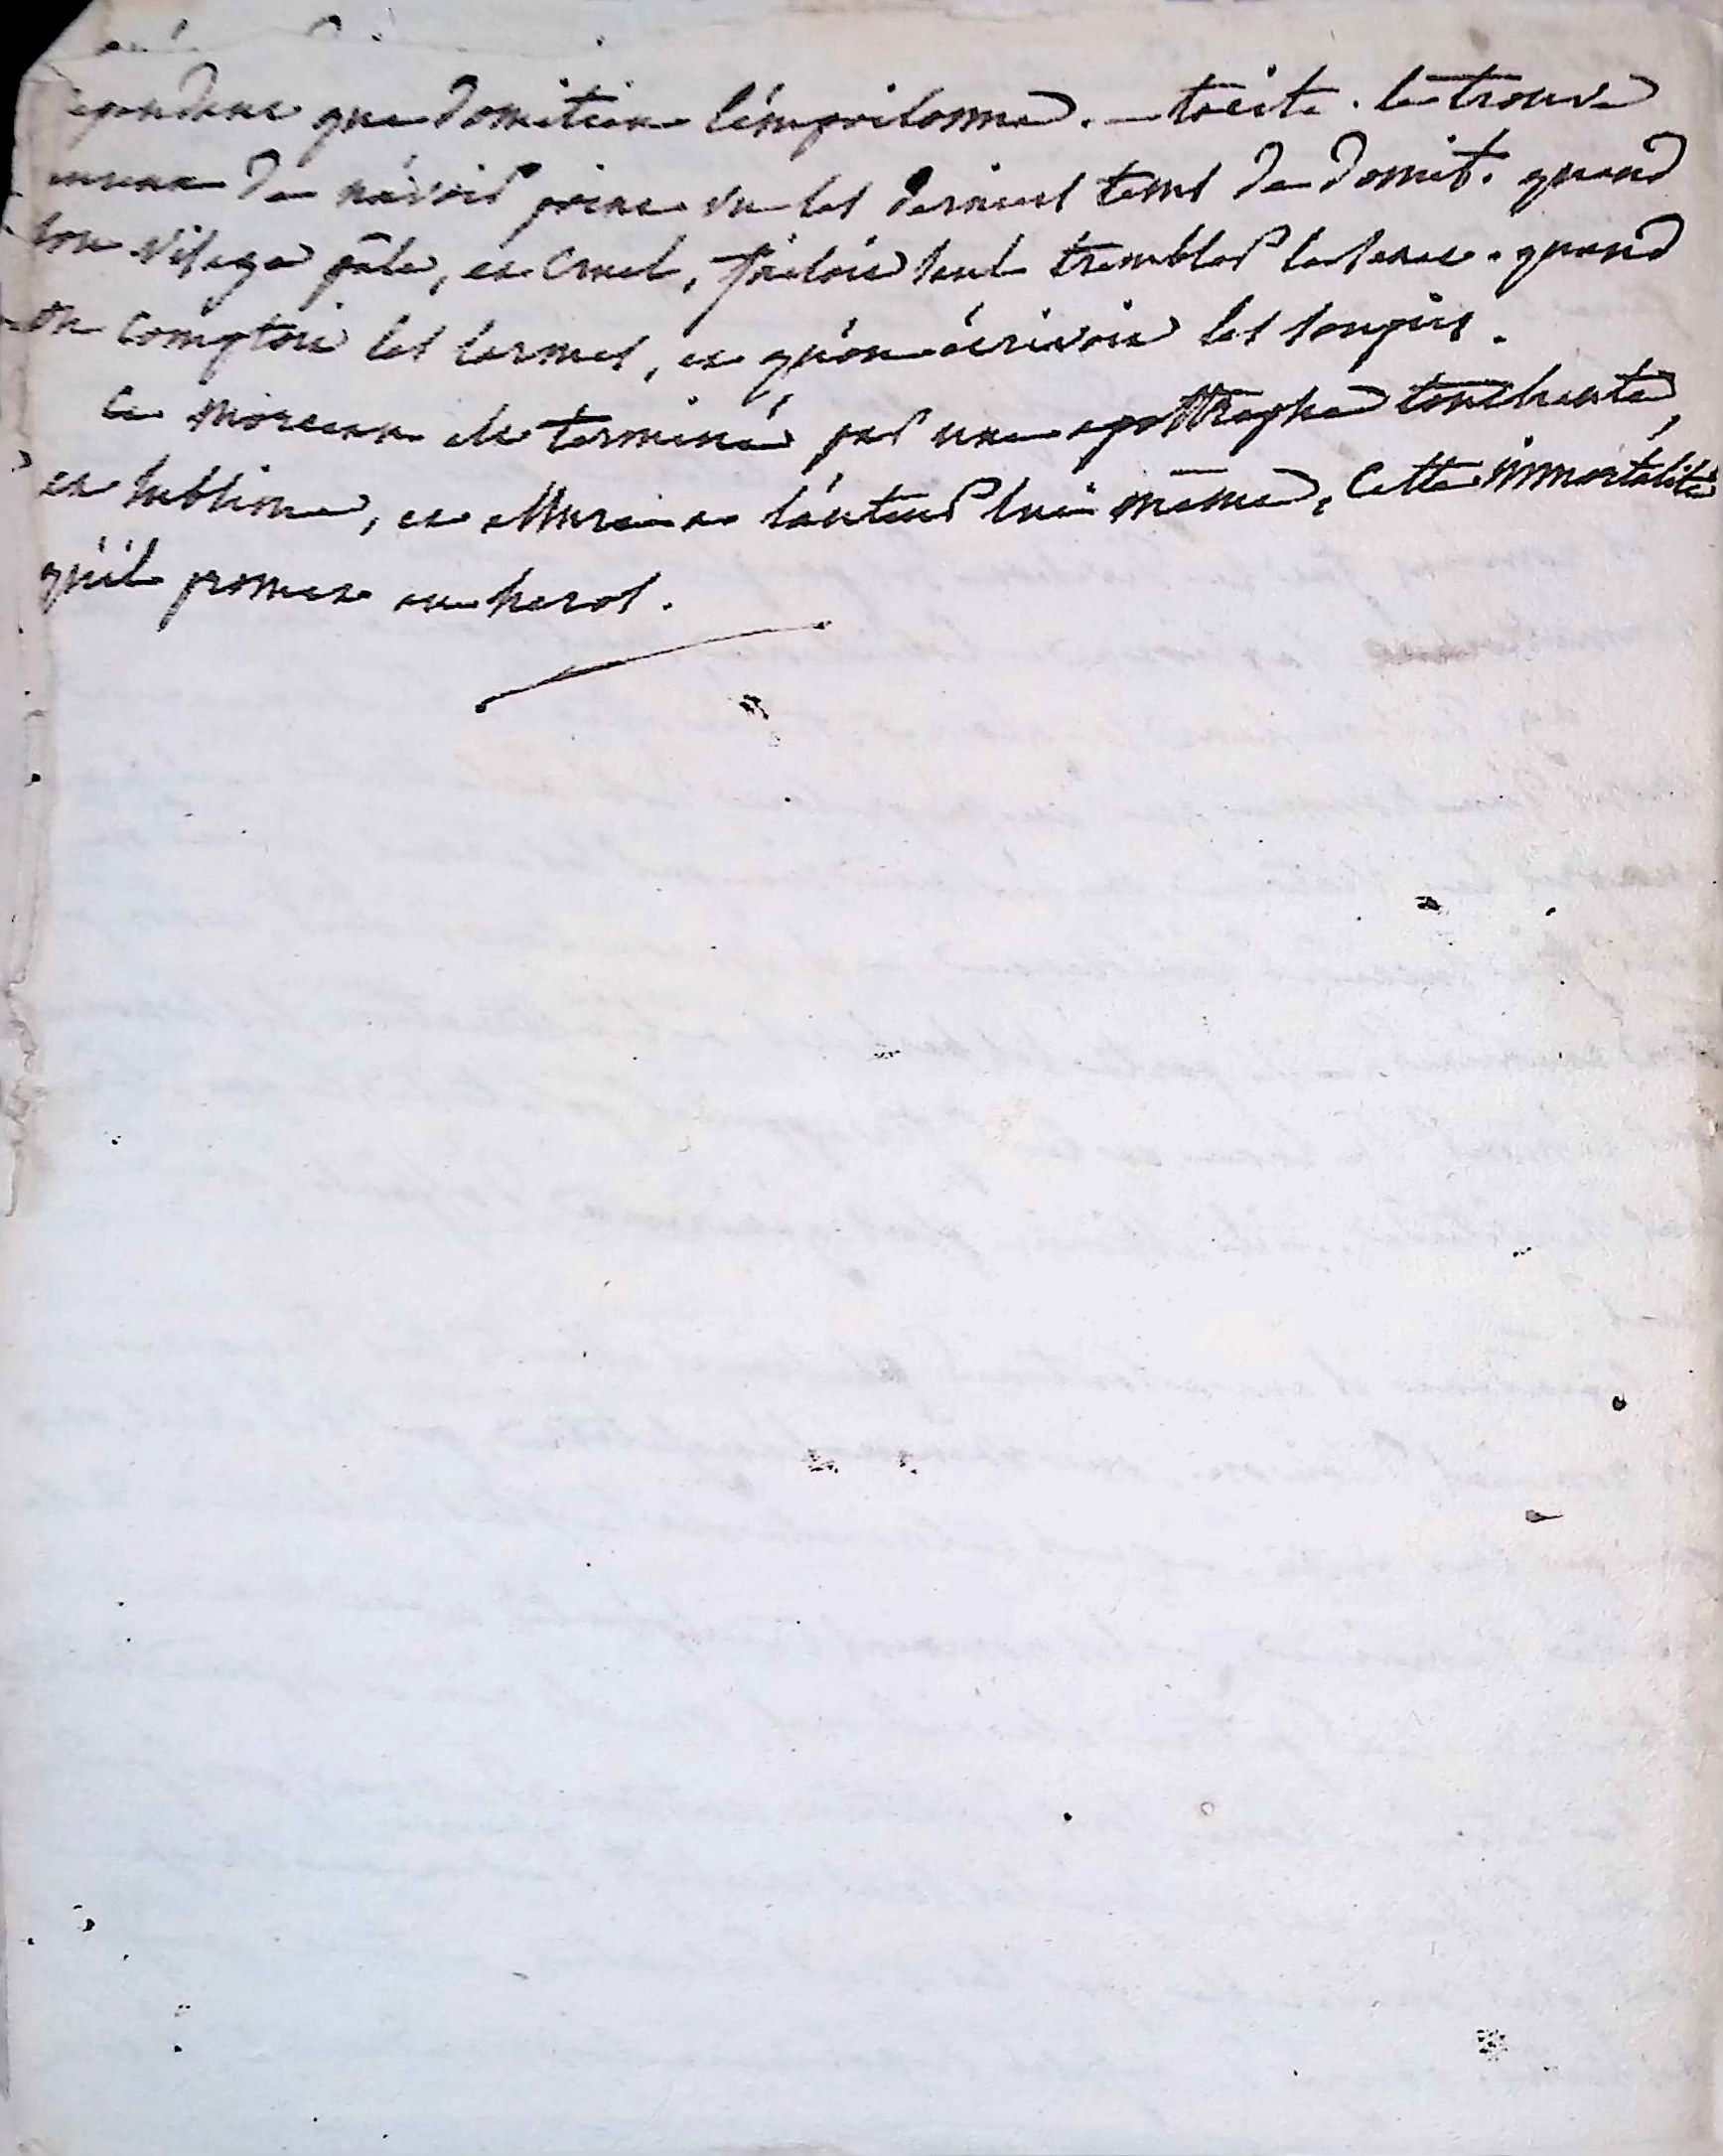 que domitien l'émpoisonna. — tacite. le trouve
de n'avoir point vu les derniers tems de domit. quand
son visage pâle, et cruel, faisoit seul trembler le senat. quand
on comptoit les larmes, et qu'on écrivoit les soupirs.
Ce morceau est terminé par une apostrophe touchante,
et sublime, et assure a l'auteur lui même, Cette immortalité
qu'il promet au heros.